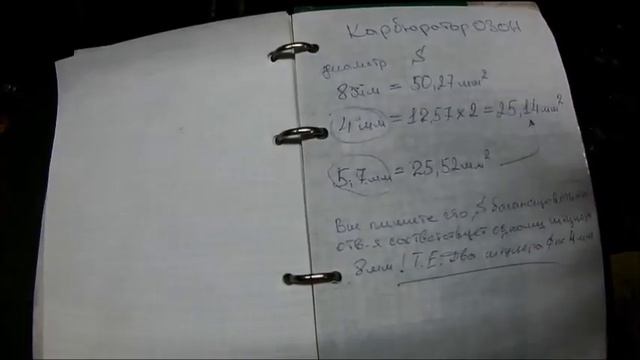 Карбюратор ОЗОН
диаметр S
8мм = 50,27мм²
4мм = 12,57×2 = 25,14мм²
5,7мм = 25,52мм²
Вы пишите что, S балансировочного
отв-я соответствует одному
8мм! Т.Е. Два по 4мм